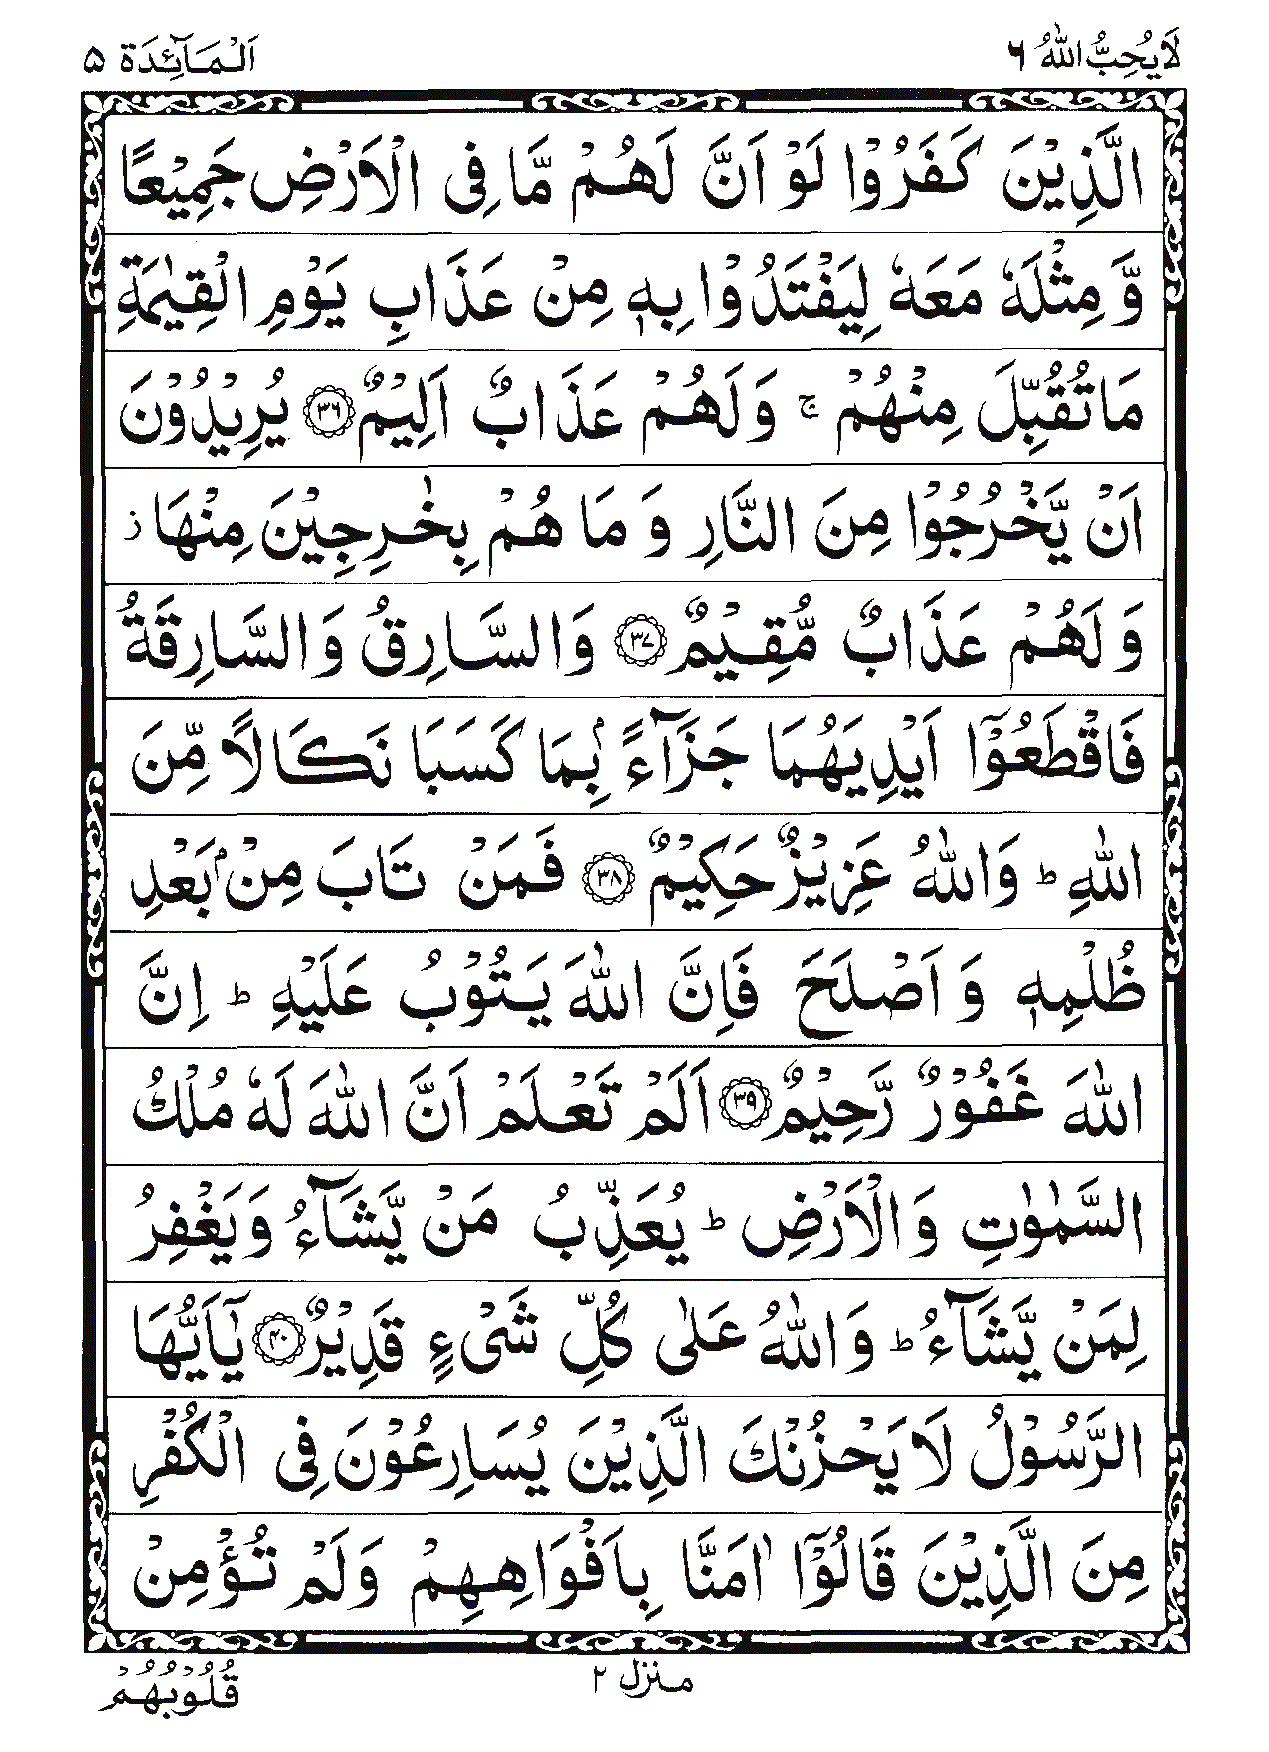 لَا يُحِبُّ اللهُ ۶ اَلْمَآئِدَة ۵
الَّذِيْنَ كَفَرُوْا لَوْ اَنَّ لَهُمْ مَّا فِى الْاَرْضِ جَمِيْعًا
وَّ مِثْلَهٗ مَعَهٗ لِيَفْتَدُوْا بِهٖ مِنْ عَذَابِ يَوْمِ الْقِيٰمَةِ
مَا تُقُبِّلَ مِنْهُمْ ۚ وَلَهُمْ عَذَابٌ اَلِيْمٌ ﴿۳۶﴾ يُرِيْدُوْنَ
اَنْ يَّخْرُجُوْا مِنَ النَّارِ وَ مَا هُمْ بِخٰرِجِيْنَ مِنْهَا ز
وَ لَهُمْ عَذَابٌ مُّقِيْمٌ ﴿۳۷﴾ وَالسَّارِقُ وَالسَّارِقَةُ
فَاقْطَعُوْۤا اَيْدِيَهُمَا جَزَآءًۢ بِمَا كَسَبَا نَكَالًا مِّنَ
اللهِ ؕ وَاللهُ عَزِيْزٌ حَكِيْمٌ ﴿۳۸﴾ فَمَنْ تَابَ مِنْۢ بَعْدِ
ظُلْمِهٖ وَ اَصْلَحَ فَاِنَّ اللهَ يَتُوْبُ عَلَيْهِ ؕ اِنَّ
اللهَ غَفُوْرٌ رَّحِيْمٌ ﴿۳۹﴾ اَلَمْ تَعْلَمْ اَنَّ اللهَ لَهٗ مُلْكُ
السَّمٰوٰتِ وَ الْاَرْضِ ؕ يُعَذِّبُ مَنْ يَّشَآءُ وَيَغْفِرُ
لِمَنْ يَّشَآءُ ؕ وَ اللهُ عَلٰى كُلِّ شَىْءٍ قَدِيْرٌ ﴿۴۰﴾ يٰۤاَيُّهَا
الرَّسُوْلُ لَا يَحْزُنْكَ الَّذِيْنَ يُسَارِعُوْنَ فِى الْكُفْرِ
مِنَ الَّذِيْنَ قَالُوْۤا اٰمَنَّا بِاَفْوَاهِهِمْ وَلَمْ تُؤْمِنْ
منزل ۲
قُلُوْبُهُمْ